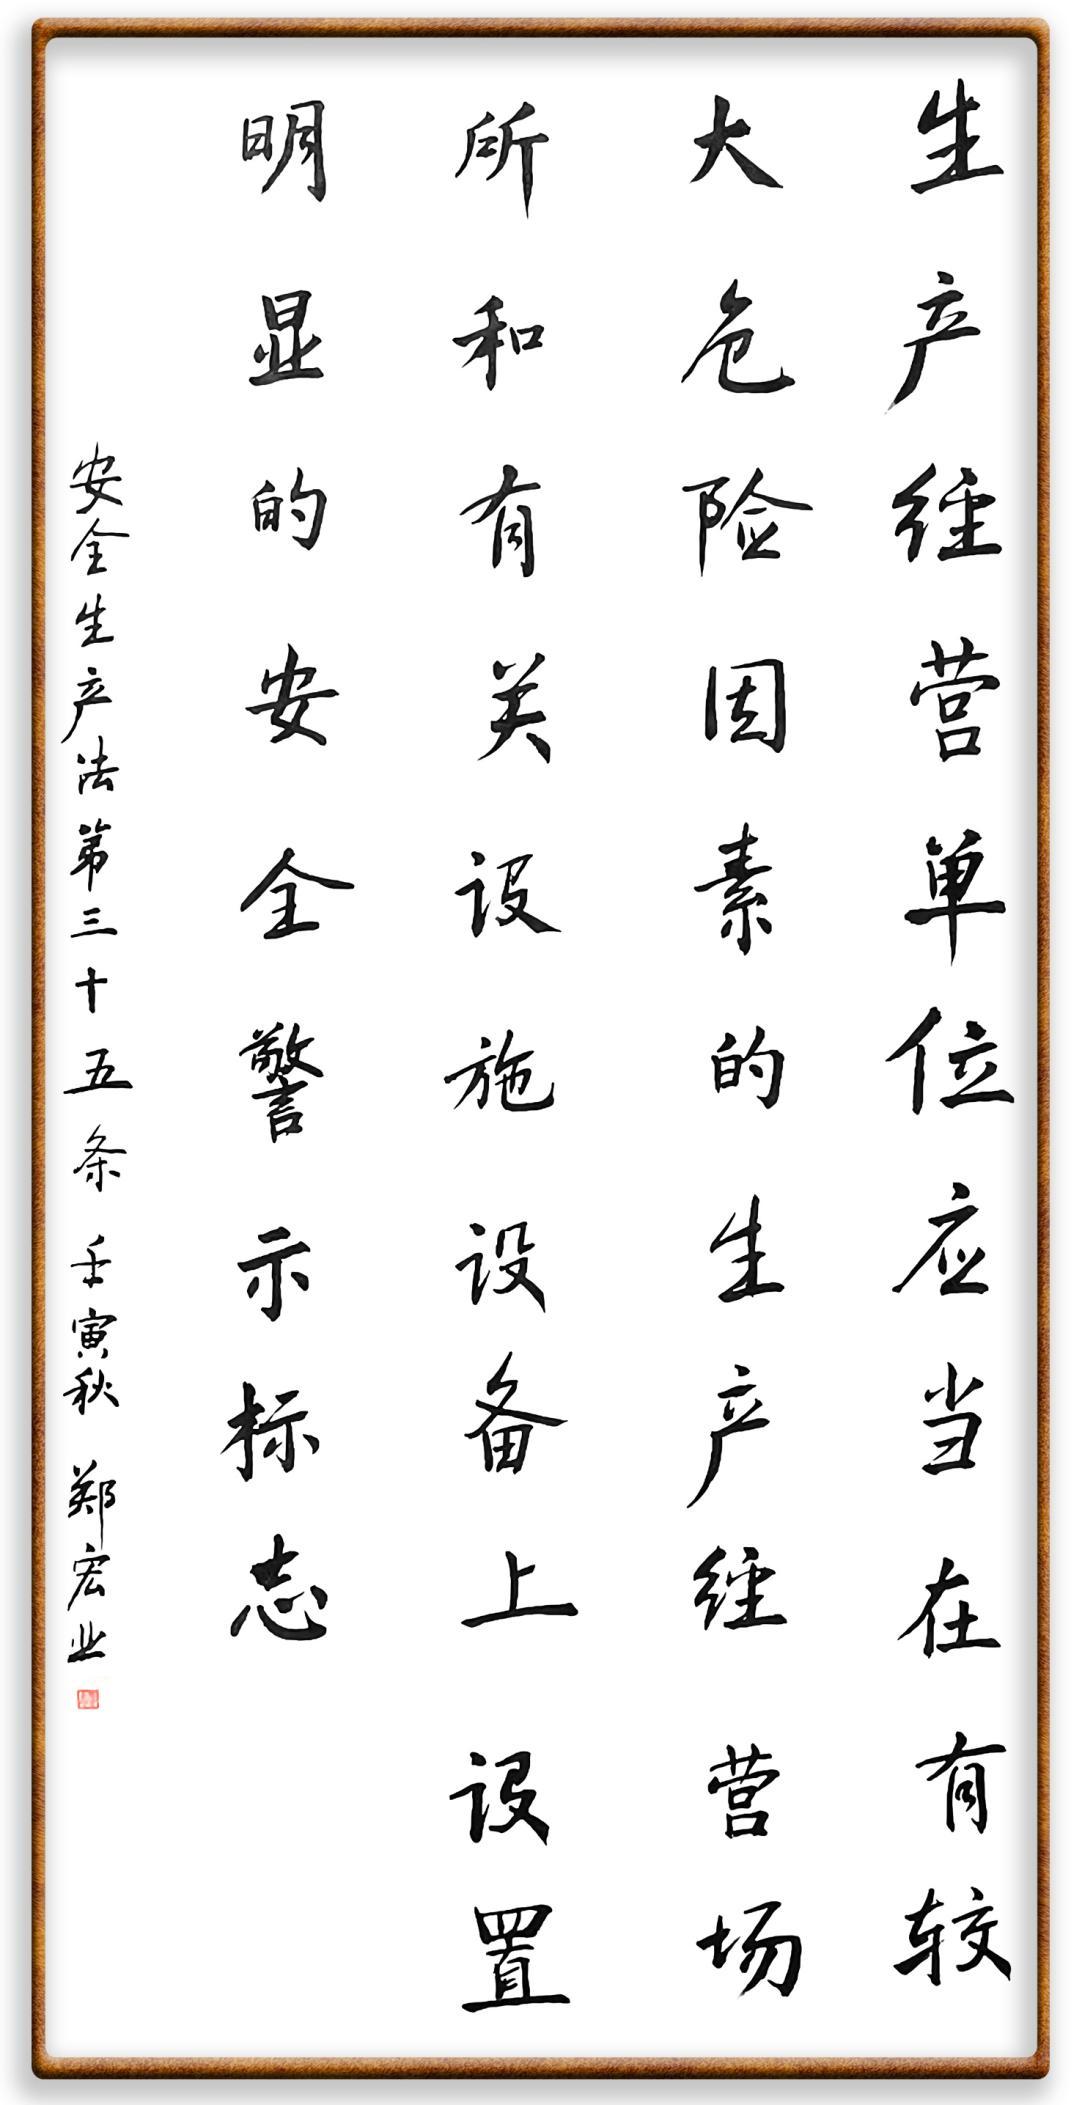 生产经营单位应当在有较
大危险因素的生产经营场
所和有关设施设备上设置
明显的安全警示标志
安全生产法第三十五条 壬寅秋 郑宏业